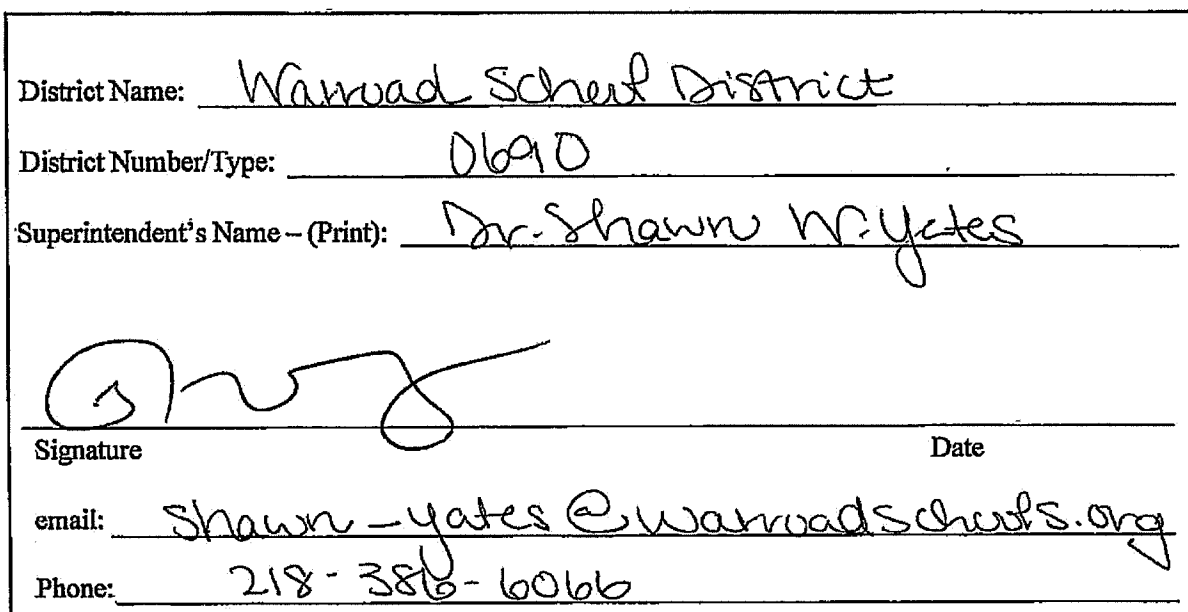 District Name: Warroad School District
District Number/Type: 0690
Superintendent's Name – (Print): Dr. Shawn W. Yates
Signature Date
email: shawn_yates@warroadschools.org
Phone: 218-386-6066